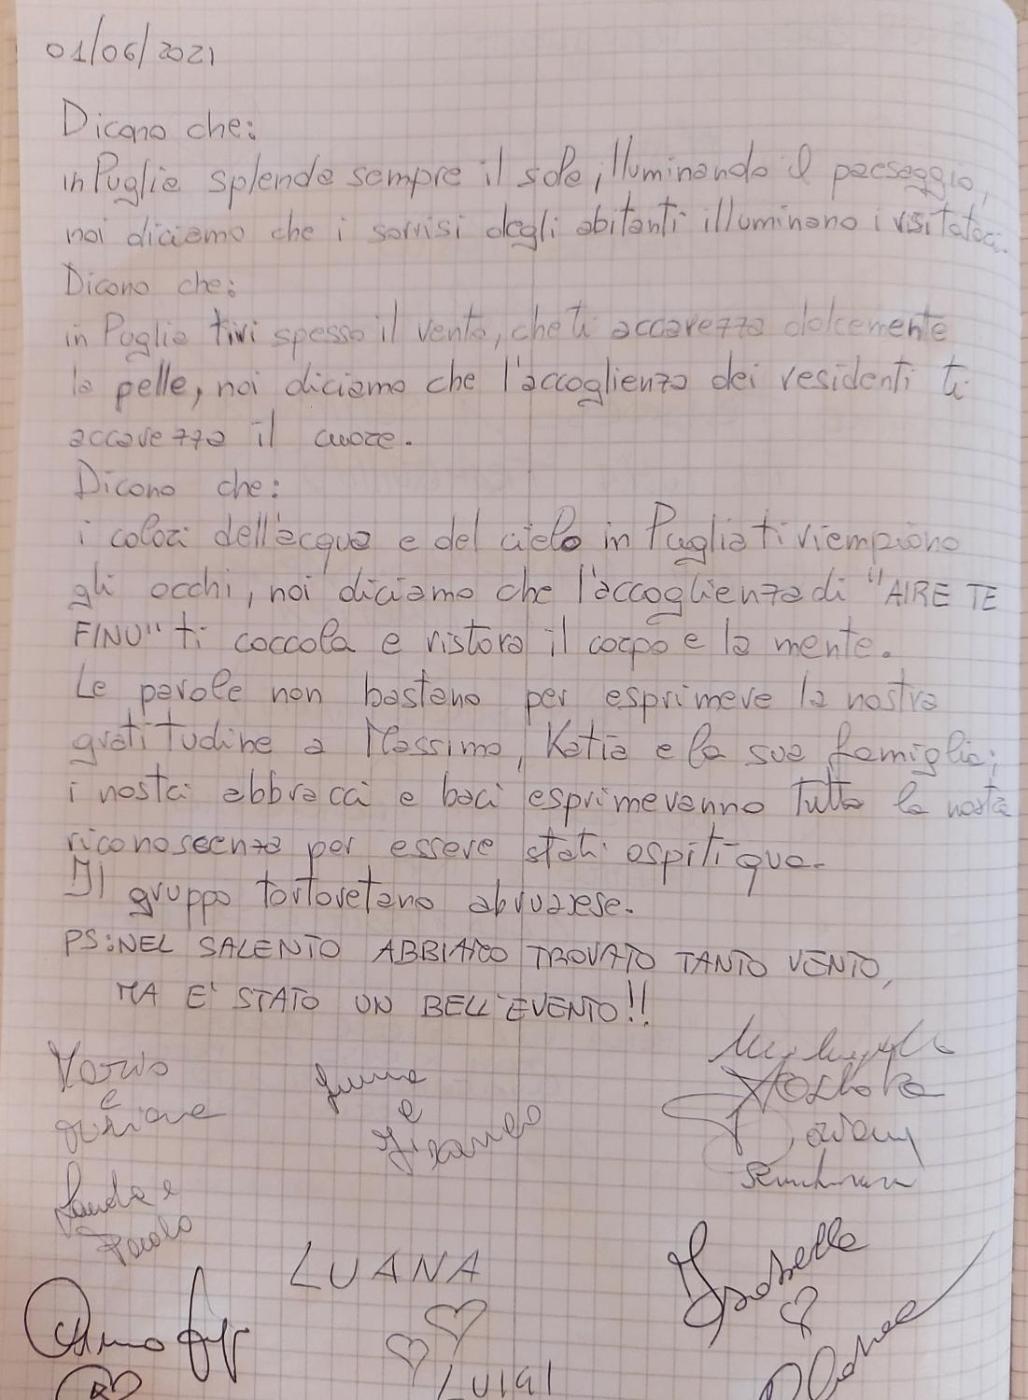 01/06/2021
Dicono che:
in Puglia splende sempre il sole, illuminando il paesaggio,
noi diciamo che i sorrisi degli abitanti illuminano i visitatori.
Dicono che:
in Puglia tiri spesso il vento, che ti accarezza dolcemente
la pelle, noi diciamo che l'accoglienza dei residenti ti
accarezza il cuore.
Dicono che:
i colori dell'acqua e del cielo in Puglia ti riempiono
gli occhi, noi diciamo che l'accoglienza di "AIRE TE
FINU" ti coccola e ristora il corpo e la mente.
Le parole non bastano per esprimere la nostra
gratitudine a Massimo, Katia e la sua famiglia;
i nostri abbracci e baci esprimeranno tutta la nostra
riconoscenza per essere stati ospiti qua.
Il gruppo tortoretano abruzzese.
PS: NEL SALENTO ABBIAMO TROVATO TANTO VENTO,
MA E' STATO UN BELL'EVENTO!!
e
e
e
Paolo
LUANA
Isabella
LUIGI